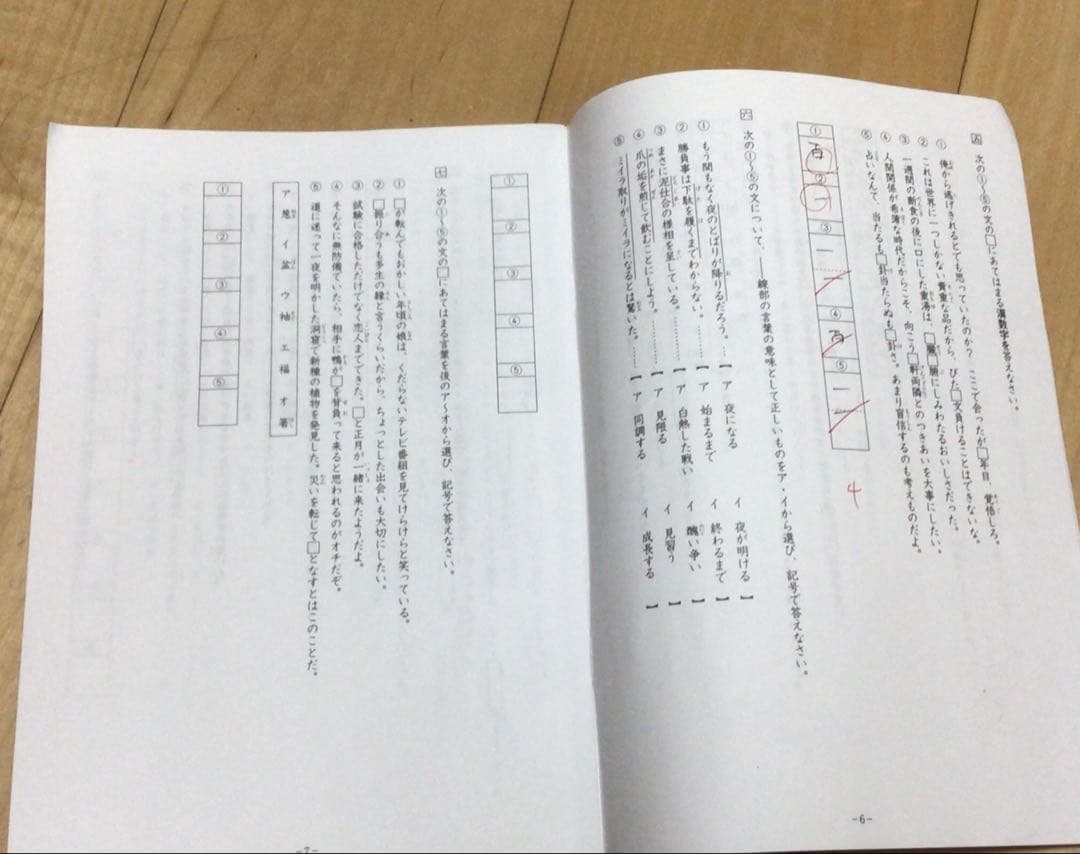 五 次の①〜⑤の文の□にあてはまる漢数字を答えなさい。
① 俺から逃げきれるとでも思っていたのか? ここで会ったが□年目、覚悟しろ。
② これは世界に一つしかない貴重な品だから、びた□文負けることはできないな。
③ 一週間の断食の後に口にした重湯は、□臓□腑にしみわたるおいしさだった。
④ 人間関係が希薄な時代だからこそ、向こう□軒両隣とのつきあいを大事にしたい。
⑤ 占いなんて、当たるも□卦当たらぬも□卦さ。あまり盲信するのも考えものだよ。
① 百 ② 一 ③ 一 一 ④ 百 ⑤ 一
4
六 次の①〜⑤の文について、――線部の言葉の意味として正しいものをア・イから選び、記号で答えなさい。
① もう間もなく夜のとばりが降りるだろう。……【 ア 夜になる イ 夜が明ける 】
② 勝負事は下駄を履くまでわからない。………【 ア 始まるまで イ 終わるまで 】
③ まさに泥仕合の様相を呈している。…………【 ア 白熱した戦い イ 醜い争い 】
④ 爪の垢を煎じて飲むことにしよう。…………【 ア 見限る イ 見習う 】
⑤ ミイラ取りがミイラになるとは驚いた。……【 ア 同調する イ 成長する 】
-6-
① ② ③ ④ ⑤
七 次の①〜⑤の文の□にあてはまる言葉を後のア〜オから選び、記号で答えなさい。
① □が転んでもおかしい年頃の娘は、くだらないテレビ番組を見てけらけらと笑っている。
② □振り合うも多生の縁と言うくらいだから、ちょっとした出会いも大切にしたい。
③ 試験に合格しただけでなく恋人までできた。□と正月が一緒に来たようだよ。
④ そんなに無防備でいたら、相手に鴨が□を背負って来ると思われるのがオチだぞ。
⑤ 道に迷って一夜を明かした洞窟で新種の植物を発見した。災いを転じて□となすとはこのことだ。
ア 葱 イ 盆 ウ 袖 エ 福 オ 箸
① ② ③ ④ ⑤
-7-